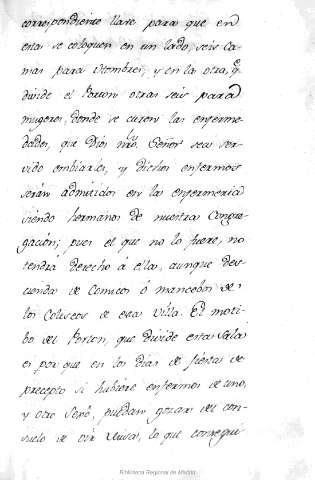 correspondiente llave para que en
esta se coloquen en un lado, seis ca-
mas para Hombres, y en la otra, q.
divide el Porton otras seis para
mugeres, donde se curen las enferme-
dades, que Dios nro. Señor sea ser-
vido embiarles, y dichos enfermos
serán admitidos en la enfermeria
siendo hermanos de nuestra Congre-
gación; pues el que no lo fuere, no
tendra derecho á ella, aunque des-
cienda de Comicos ó mancebos de
los Coliseos de esta Villa. El moti-
bo del Porton, que divide esta Sala
es por que en los dias de fiesta de
precepto si hubiere enfermos de uno,
y otro Sexô, puedan gozar del con-
suelo de oir Misa, lo que consegui-
Biblioteca Regional de Madrid